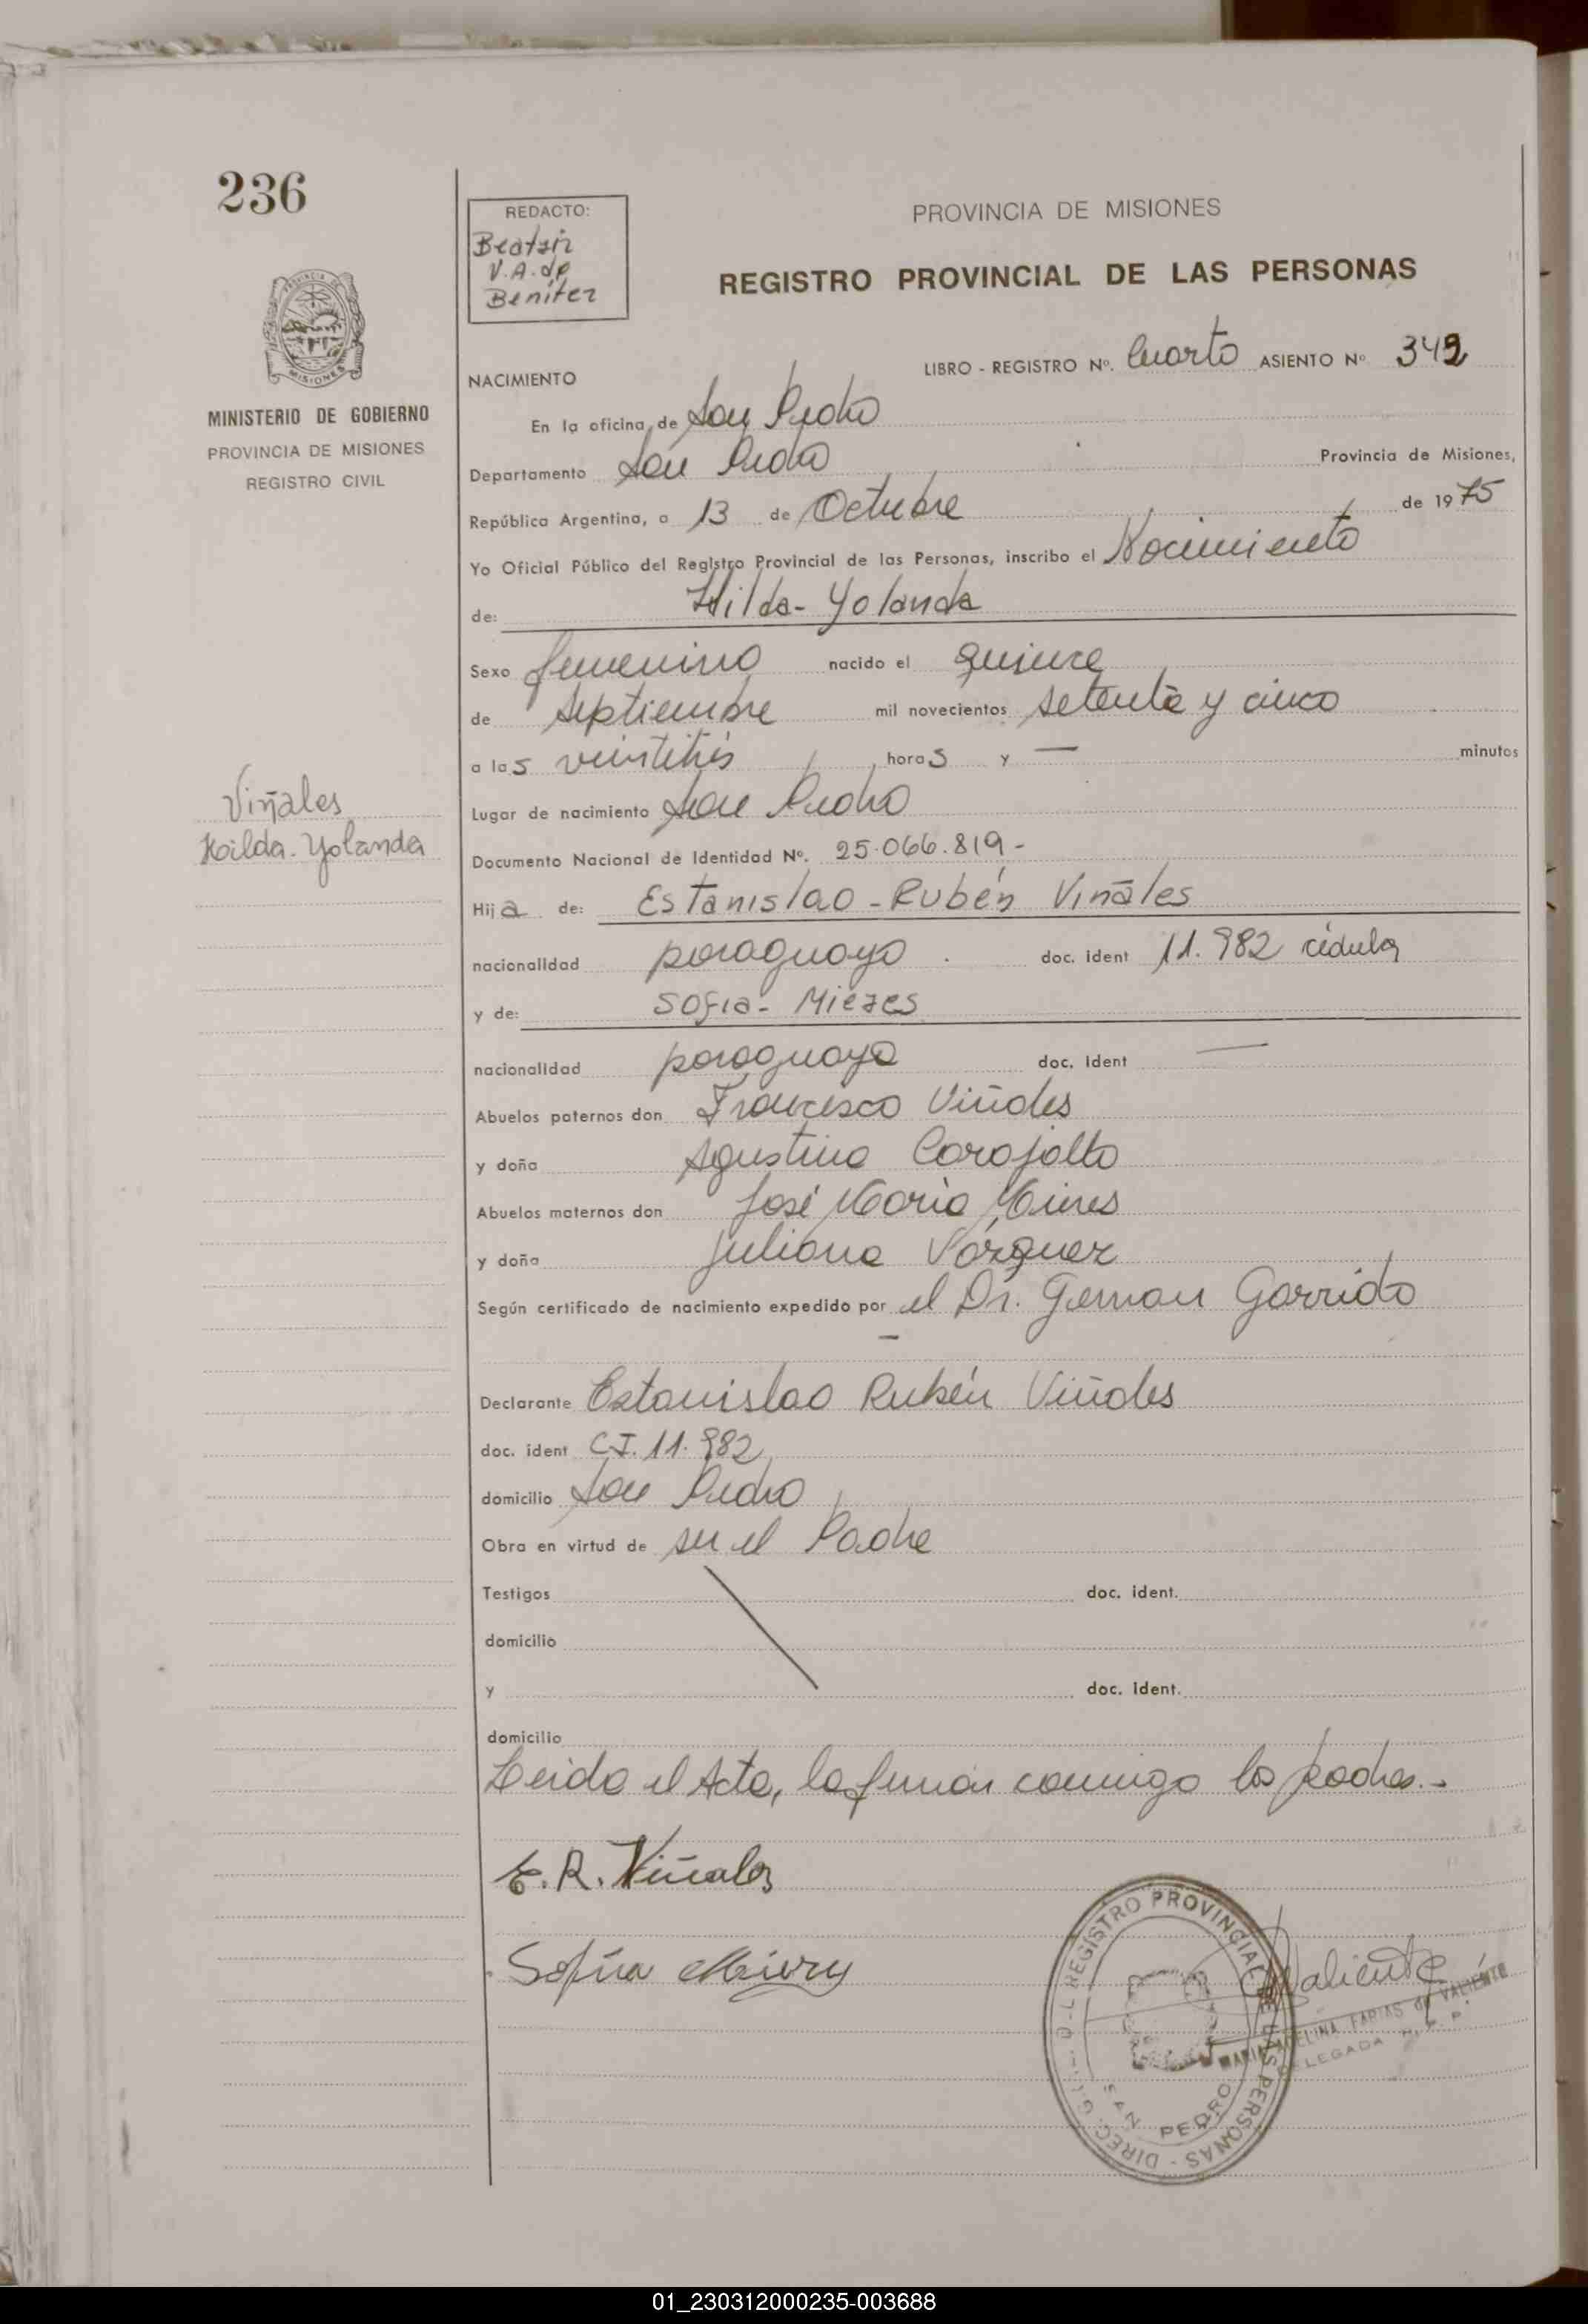 236
REDACTO:
Beatriz
V.A. de
Benítez
PROVINCIA DE MISIONES
REGISTRO PROVINCIAL DE LAS PERSONAS
MISIONES
MINISTERIO DE GOBIERNO
PROVINCIA DE MISIONES
REGISTRO CIVIL
NACIMIENTO
LIBRO - REGISTRO Nº. Cuarto ASIENTO Nº. 349
En la oficina de San Pedro
Departamento San Pedro Provincia de Misiones,
República Argentina, a 13 de Octubre de 1975
Yo Oficial Público del Registro Provincial de las Personas, inscribo el Nacimiento
de: Hilda - Yolanda
Sexo femenino nacido el quince
de Septiembre mil novecientos setenta y cinco
a las veintitrés horas y — minutos
Viñales
Hilda - Yolanda
Lugar de nacimiento San Pedro
Documento Nacional de Identidad Nº. 25.066.819 -
Hija de: Estanislao - Rubén Viñales
nacionalidad paraguaya doc. ident 11.982 cédula
y de: Sofia - Mieres
nacionalidad paraguaya doc. ident —
Abuelos paternos don Francisco Viñales
y doña Agustina
Abuelos maternos don José María Mieres
y doña Juliana Vázquez
Según certificado de nacimiento expedido por el Dr. German Garrido
—
Declarante Estanislao Rubén Viñales
doc. ident C.I. 11.982
domicilio San Pedro
Obra en virtud de ser el Padre
Testigos doc. ident.
domicilio
y doc. ident.
domicilio
Leida el Acta, la firman conmigo los padres.-
E. R. Viñales
Sofia Mieres
Valiente
MARIA ADELINA FARIAS de VALIENTE
DELEGADA R. P. P.
DIREC. REGISTRO PROVINCIAL DE LAS PERSONAS
SAN PEDRO
01_230312000235-003688